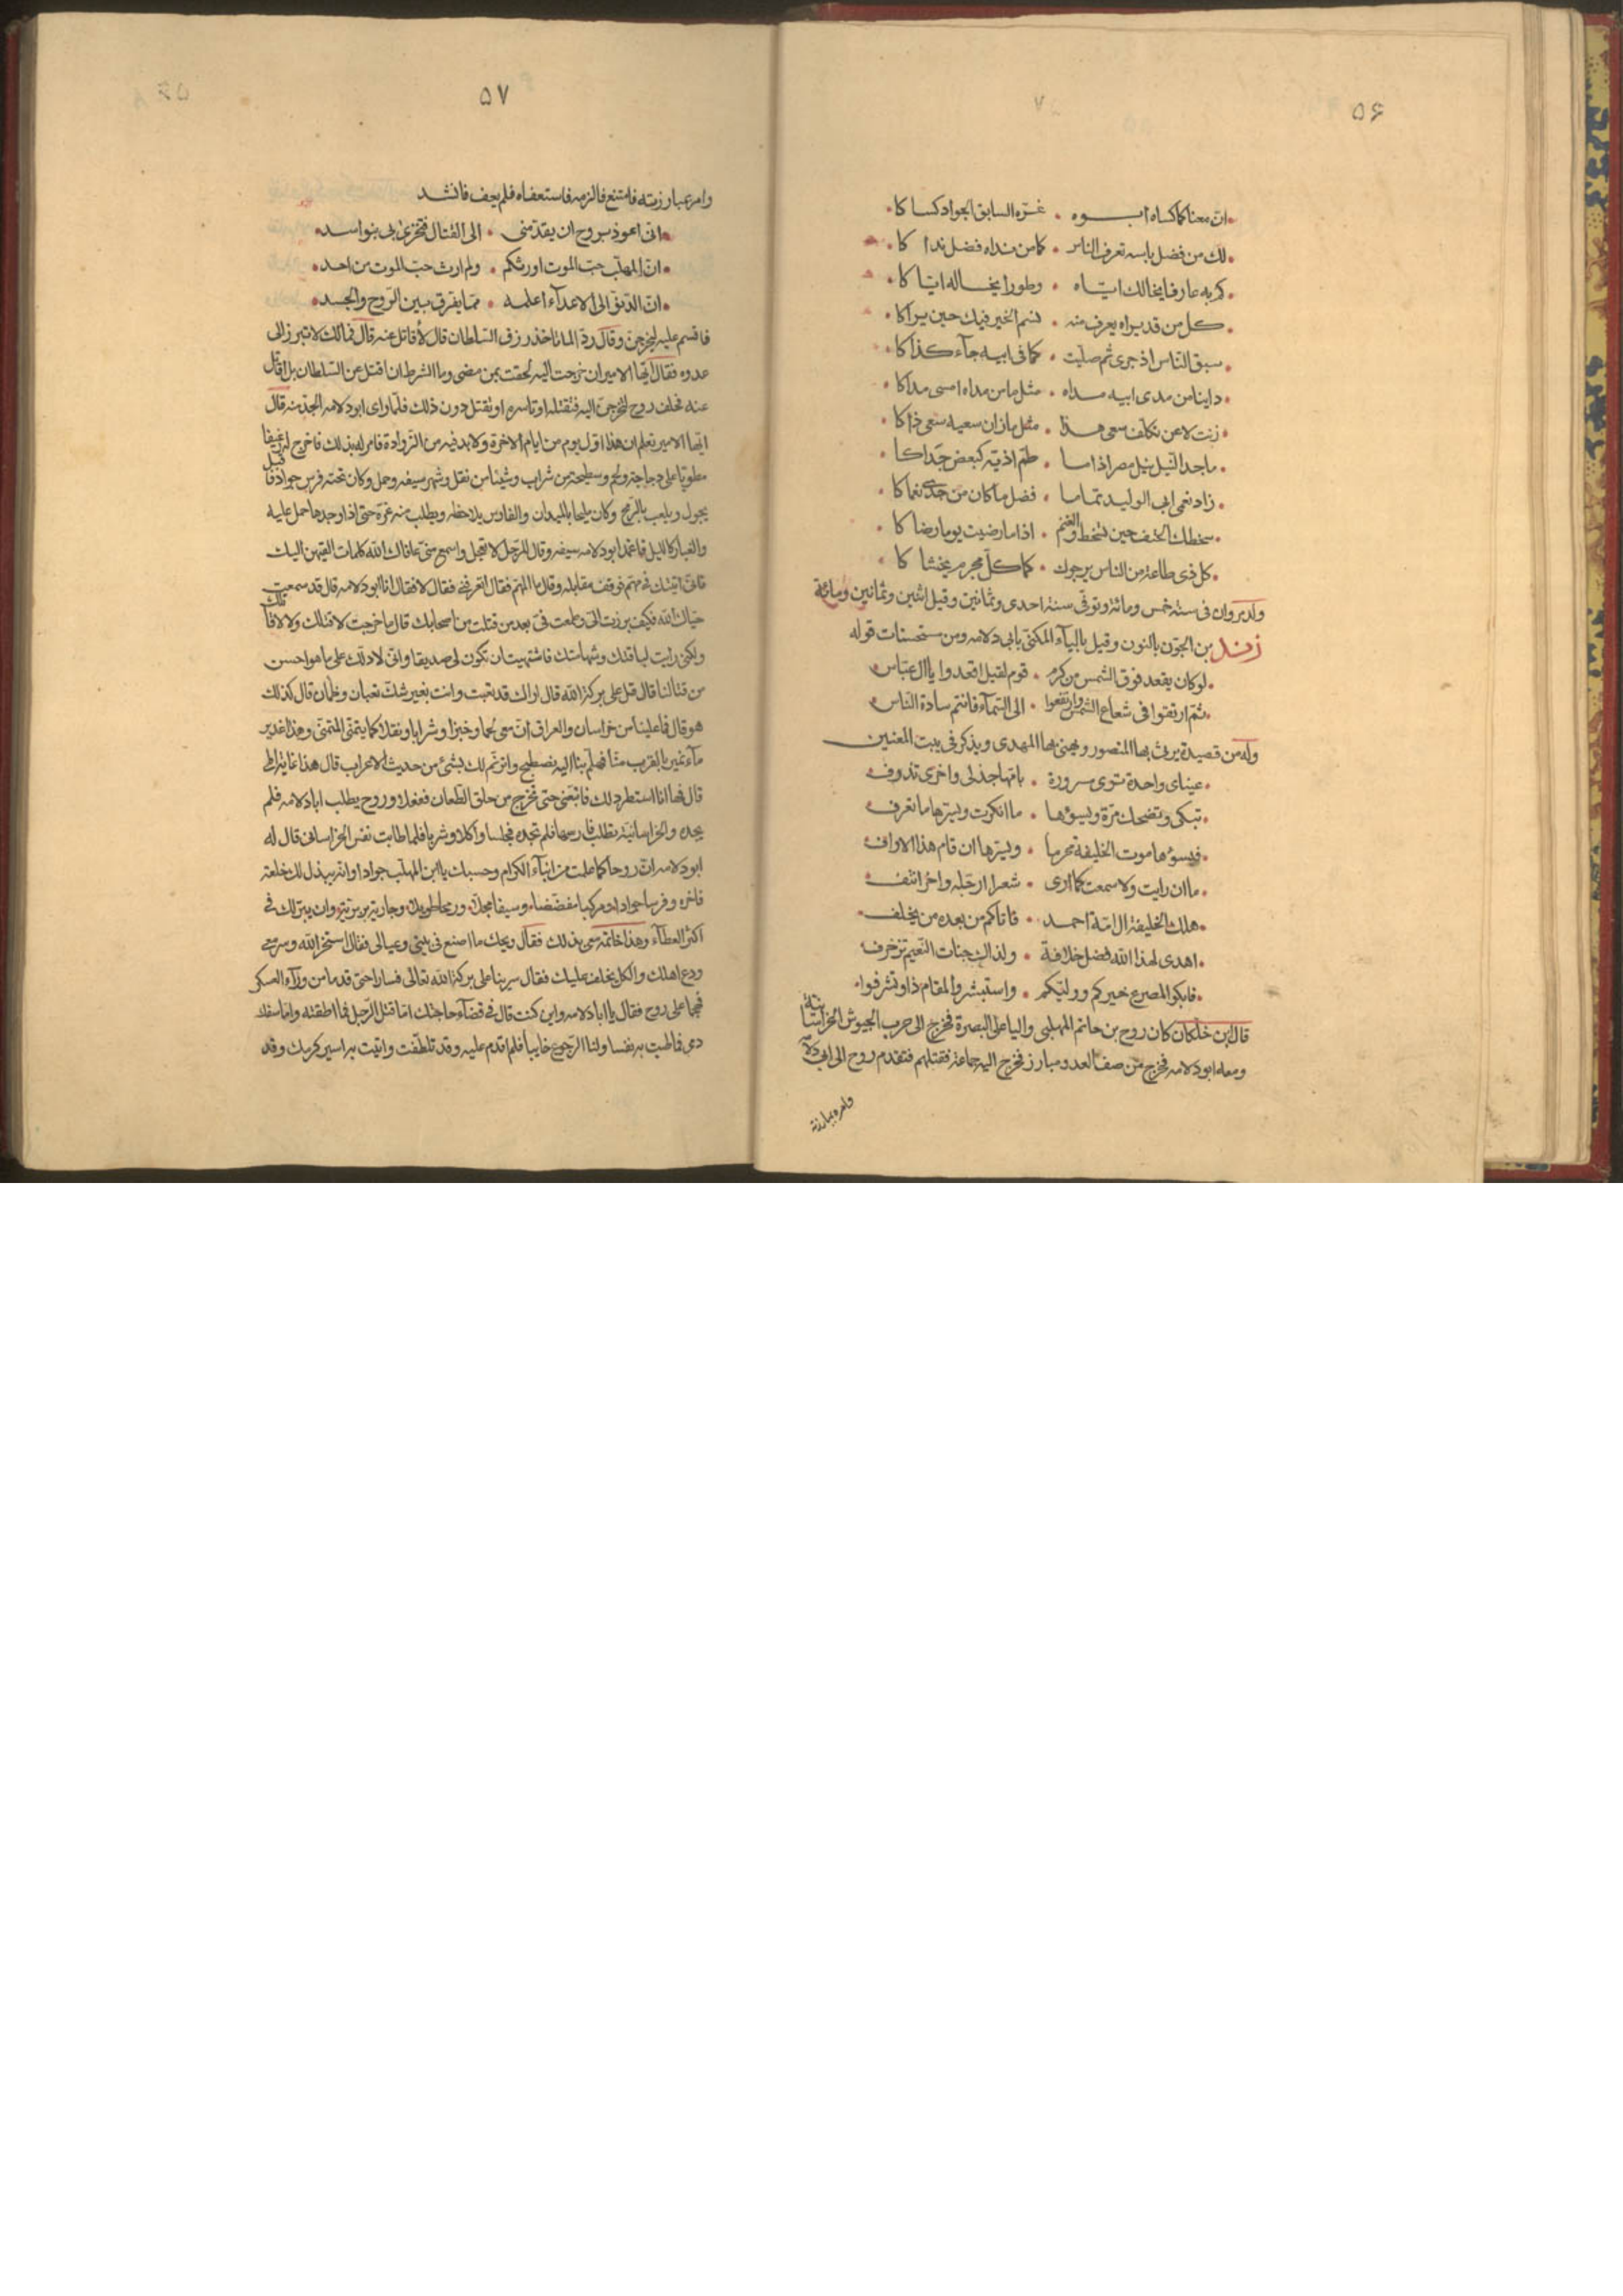 ۵۶
ان معنا كما كساه ابوه . غرة السابق الجواد كساكا
لك من فضل باسه تعرف الناس . كما من نداه فضل نداكا
كر به عارفا يخالك اياه . وطورا يخاله اياكا
كل من قد يراه يعرف منه . نسم الخير فيك حين يراكا
سبق الناس اذ جرى ثم صليت . كما فى ابيه جاء كذاكا
داينا من مدى ابيه مداه . مثل ما من مداه امسى مداكا
زنت لا عن تكلف سعى هذا . مثل ما زان سعيه سعى ذاكا
ماجد النيل نيل مصر اذا ما . طم اذيه كبعض جداكا
زاد نعمى ابى الوليد تماما . فضل ما كان من جدى نعماكا
سخطك الحتف حين تسخط والغنم . اذا ما رضيت يوما رضاكا
كل ذى طاعة من الناس يرجوك . كما كل مجرم يخشاكا
ولد مروان فى سنة خمس ومائة وتوفى سنة احدى وثمانين وقيل اثنين وثمانين ومائة
زند بن الجون بالنون وقيل بالياء المكنى بابى دلامه ومن مستحسنات قوله
لو كان يقعد فوق الشمس من كرم . قوم لقيل اقعدوا يا ال عباس
ثم ارتقوا فى شعاع الشمس وارتفعوا . الى السماء فانتم سادة الناس
وله من قصيدة يرثى بها المنصور ويهنى بها المهدى ويذكر فى بيت المعنيين
عيناى واحدة ترى مسرورة . بامامها جذلى واخرى تذرف
تبكى وتضحك مرة ويسوءها . ما انكرت ويسرها ما تعرف
فيسوءها موت الخليفة محرما . ويسرها ان قام هذا الاراف
ما ان رايت ولا سمعت كما ارى . شعرا ارجله واخر انتف
هلك الخليفة ال امة احمد . فاتاكم من بعده من يخلف
اهدى لهذا الله فضل خلافة . ولذاك جنات النعيم تزخرف
فابكوا لمصرع خيركم ووليكم . واستبشروا لمقام ذا وتشرفوا
قال ابن خلكان كان روح بن حاتم المهلبى واليا على البصرة فخرج الى حرب الجيوش الخراسانية
ومعه ابو دلامه فخرج من صف العدو مبارز فخرج اليه جماعة فقتلهم فتقدم روح الى ابى دلامه
وامره بمبارزته
۵۷
وامره بمبارزته فامتنع فالزمه فاستعفاه فلم يعف فانشد
انى اعوذ بروح ان يقدمنى . الى القتال فتخزى بى بنو اسد
ان المهلب حب الموت اورثكم . ولم ارث حب الموت من احد
ان الدنو الى الاعداء اعلمه . مما يفرق بين الروح والجسد
فاقسم عليه ليخرجن وقال رد الماذا تاخذ رزق السلطان قال لاقاتل عنه قال فمالك لا تبرز الى
عدوه فقال ايها الامير ان خرجت اليه لحقت بمن مضى وما الشرط ان اقتل عن السلطان بل اقاتل
عنه فحلف روح لتخرجن اليه فتقتله او تاسره او تقتل دون ذلك فلما راى ابو دلامه الجد منه قال
ايها الامير تعلم ان هذا اول يوم من ايام الاخرة ولا بد فيه من الزوادة فامر له بذلك فاخرج له رغيفا
مطويا على دجاجة ولحم وسطيحة من شراب وشيئا من نقل وشهر سيفه وحمل وكان تحته فرس جواد فاقبل
يجول ويلعب بالرمح وكان مليحا بالميدان والفارس يلاحظه ويطلب منه غرة حتى اذا وجدها حمل عليه
والغبار كالليل فاغمد ابو دلامه سيفه وقال للرجل لا تعجل واسمع منى عافاك الله كلمات القيهن اليك
فانى اتيتك فى مهم فوقف مقابله وقال ما المهم فقال اتعرفنى فقال لا فقال انا ابو دلامه قال قد سمعت بك
حياك الله فكيف برزت الى وطمعت فى بعد من قتلت من اصحابك قال ما خرجت لاقتلك ولا لاقاتلك
ولكنى رايت لباقتك وشهامتك فاشتهيت ان تكون لى صديقا وانى لادلك على ما هو احسن
من قتالنا قال قل على بركة الله قال اراك قد تعبت وانت بغير شك تعبان وظمان قال كذلك
هو قال فما علينا من خراسان والعراق ان معى لحما وخبزا وشرابا ونقلا كما يتمنى المتمنى وهذا غدير
ماء نمير بالقرب منا فهلم بنا اليه نصطلح واترنم لك بشئ من حديث الاعراب قال هذا غاية املى
قال فها انا استطرد لك فاتبعنى حتى نخرج من حلق الطعان ففعلا وروح يطلب ابا دلامه فلم
يجده والخراسانية تطلب فارسها فلم تجده فجلسا واكلا وشربا فلما طابت نفس الخراسانى قال له
ابو دلامه ان روحا كما علمت من ابناء الكرام وحسبك يا ابن المهلب جوادا وانه يبذل لك خلعة
فاخرة وفرسا جوادا ومركبا مفضضا وسيفا محلى ورمحا طويلا وجارية بربرية وان ينزلك فى
اكثر العطاء وهذا خاتمه معى بذلك فقال ويحك ما اصنع فى بيتى وعيالى فقال استخر الله وسر معى
ودع اهلك والكل يخلف عليك فقال سر بنا على بركة الله تعالى فسارا حتى قدما من وراء العسكر
فهجما على روح فقال يا ابا دلامه واين كنت قال فى قضاء حاجتك اما قتل الرجل فما اطقته واما سفك
دمى فما طبت به نفسا ولنا الرجوع خائبا فلم اقدم عليه وقد تلطفت واتيت به اسير كرمك وقد